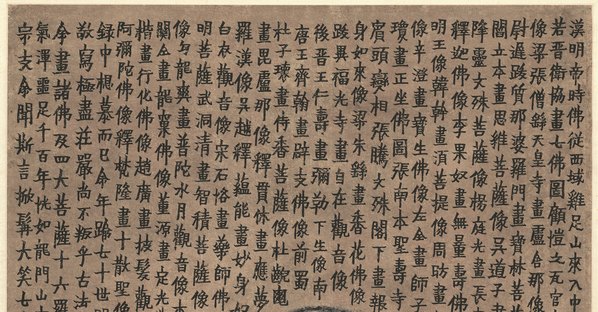 漢明帝時佛從西域雞足山來入中
若晋衛協畫七佛圖顧愷之瓦官
像梁張僧繇天皇寺畫盧舍那像
尉遲跋質那婆羅門畫寶林菩
閻立本畫思維菩薩像吳道子畫
降靈文殊菩薩像楊庭光畫長
釋迦佛像李果奴畫無量壽佛
明王像韓幹畫湏菩提像周昉畫
像辛澄畫寶生佛像左全畫師子
瓊畫正坐佛圖張南本聖壽寺
賓頭變相張騰文殊閣下畫報
身如來像梁朱繇畫香花佛像
跋異福光寺畫自在觀音像
後晋王仁壽畫彌勒下生像南
唐王齊翰畫辟支佛像前蜀
杜子瓌畫侍香菩薩像杜齯龜
畫毘盧那像釋貫休畫應夢
羅漢像吳越釋蘊能畫妙身如
白衣觀音像宋石恪畫藥師佛
明菩薩武洞清畫智積菩薩像
像勾龍爽畫普陀水月觀音像
關仝畫龍窠佛像董源畫定光
楷畫行化佛像趙廣畫披髮觀
阿彌陀佛像釋梵隆畫十散聖像
録中慕而已余年踰七十世
敬寫極盡莊嚴尚不叛乎古法
余畫諸佛及四大菩薩十六羅
氣渾噩足千百年恍如龍門山
宗支余聞斯言掀髯大笑七